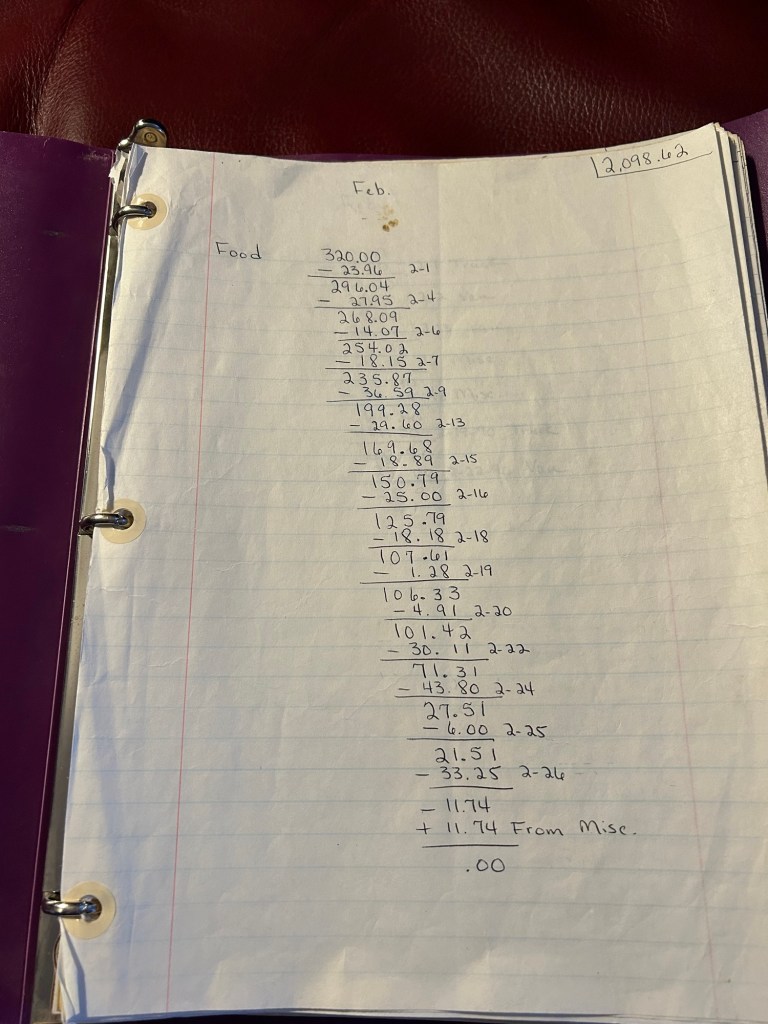 2,098.62
Feb.
Food 320.00
- 23.96 2-1
296.04
- 27.95 2-4
268.09
- 14.07 2-6
254.02
- 18.15 2-7
235.87
- 36.59 2-9
199.28
- 29.60 2-13
169.68
- 18.89 2-15
150.79
- 25.00 2-16
125.79
- 18.18 2-18
107.61
- 1.28 2-19
106.33
- 4.91 2-20
101.42
- 30.11 2-22
71.31
- 43.80 2-24
27.51
- 6.00 2-25
21.51
- 33.25 2-26
- 11.74
+ 11.74 From Misc.
.00